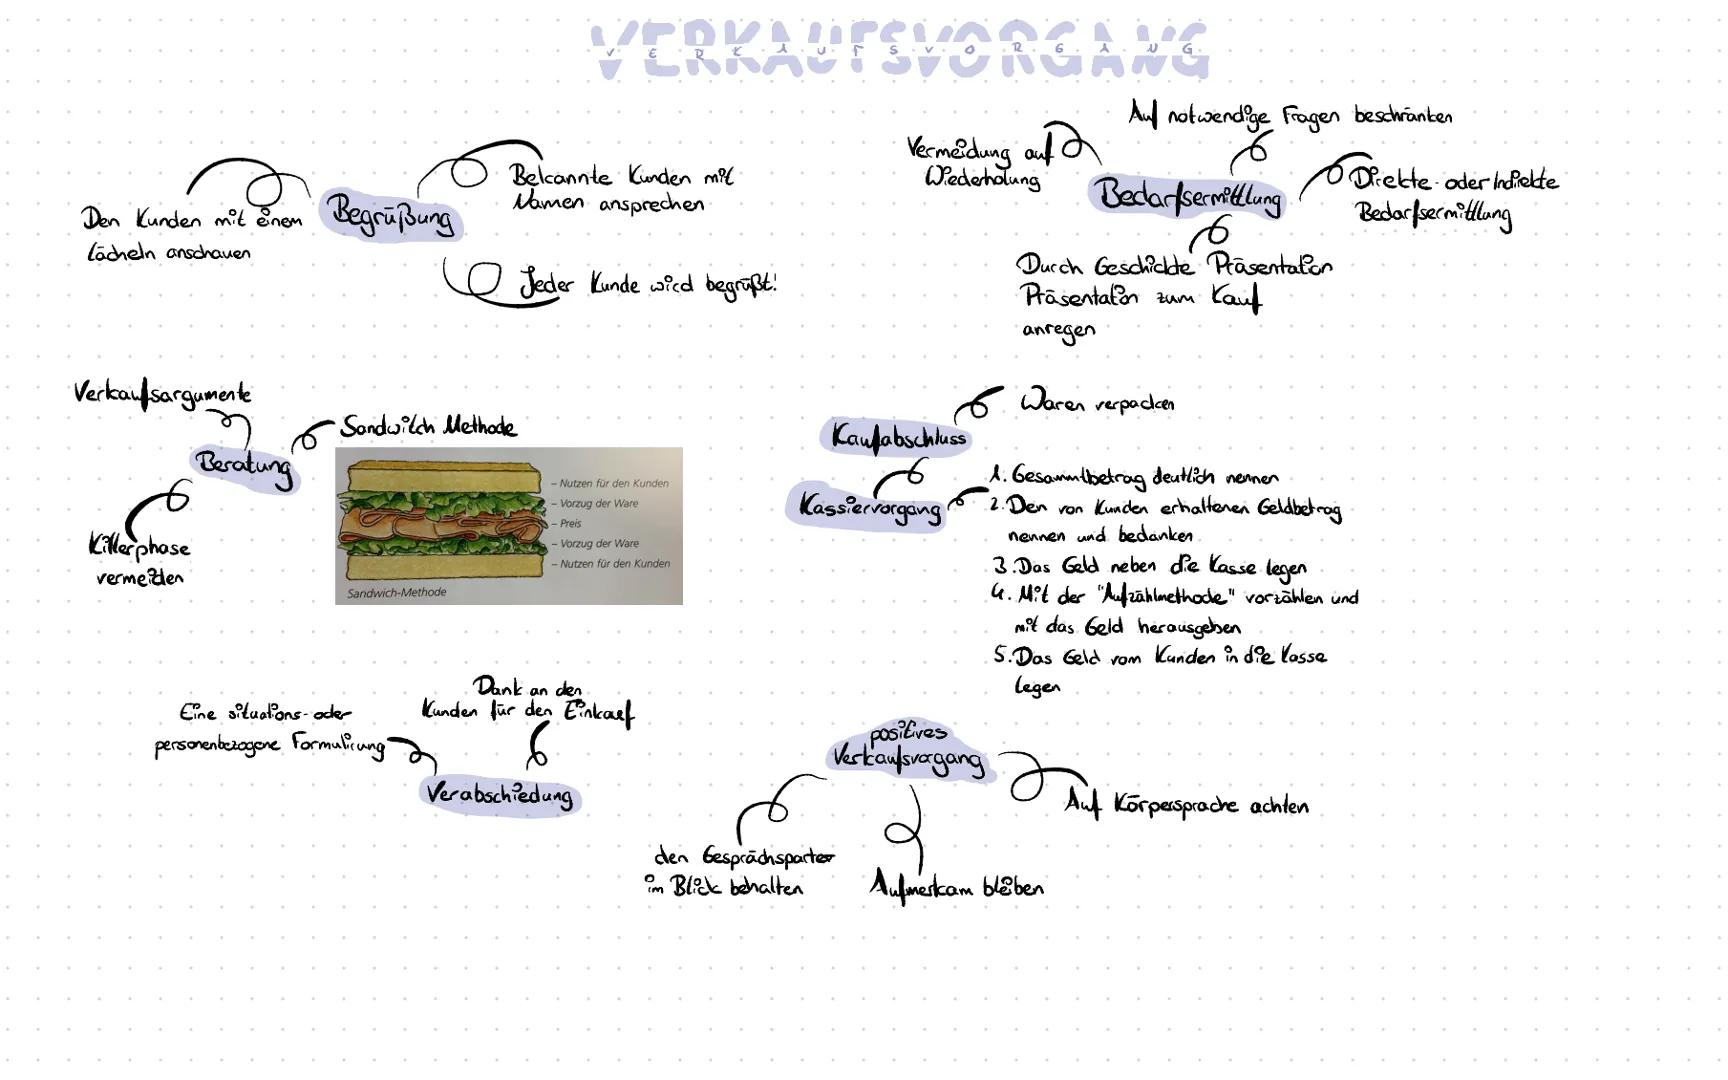 VERKAUFSVORGANG
VERKAUFSVORGANG
Den Kunden mit einem
Lächeln anschauen
Begrüßung
Bekannte Kunden mit
Namen ansprechen
Jeder Kunde wird begrüßt!
Auf notwendige Fragen beschränken
Vermeidung auf
Wiederholung
Bedarfsermittlung
Direkte oder Indirekte
Bedarfsermittlung
Durch Geschickte Präsentation
Präsentation zum Kauf
anregen
Verkaufsargumente
Beratung
Sandwitch Methode
Killerphase
vermeiden
– Nutzen für den Kunden
– Vorzug der Ware
– Preis
– Vorzug der Ware
– Nutzen für den Kunden
Sandwich-Methode
Kaufabschluss
Waren verpacken
Kassiervorgang
1. Gesammtbetrag deutlich nennen
2. Den von Kunden erhaltenen Geldbetrag
nennen und bedanken
3. Das Geld neben die Kasse legen
4. Mit der "Aufzählmethode" vorzählen und
mit das Geld herausgeben
5. Das Geld vom Kunden in die Kasse
legen
Eine situations- oder
personenbezogene Formulierung
Dank an den
Kunden für den Einkauf
Verabschiedung
positives
Verkaufsvorgang
den Gesprächsparter
im Blick behalten
Aufmerkam bleiben
Auf Körpersprache achten